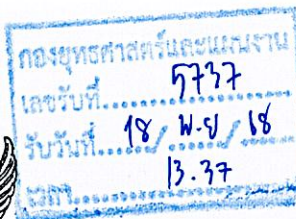 กองยุทธศาสตร์และแผนงาน
เลขรับที่.......5737
รับวันที่....18./.พ.ย./.68
เวลา..........13.37